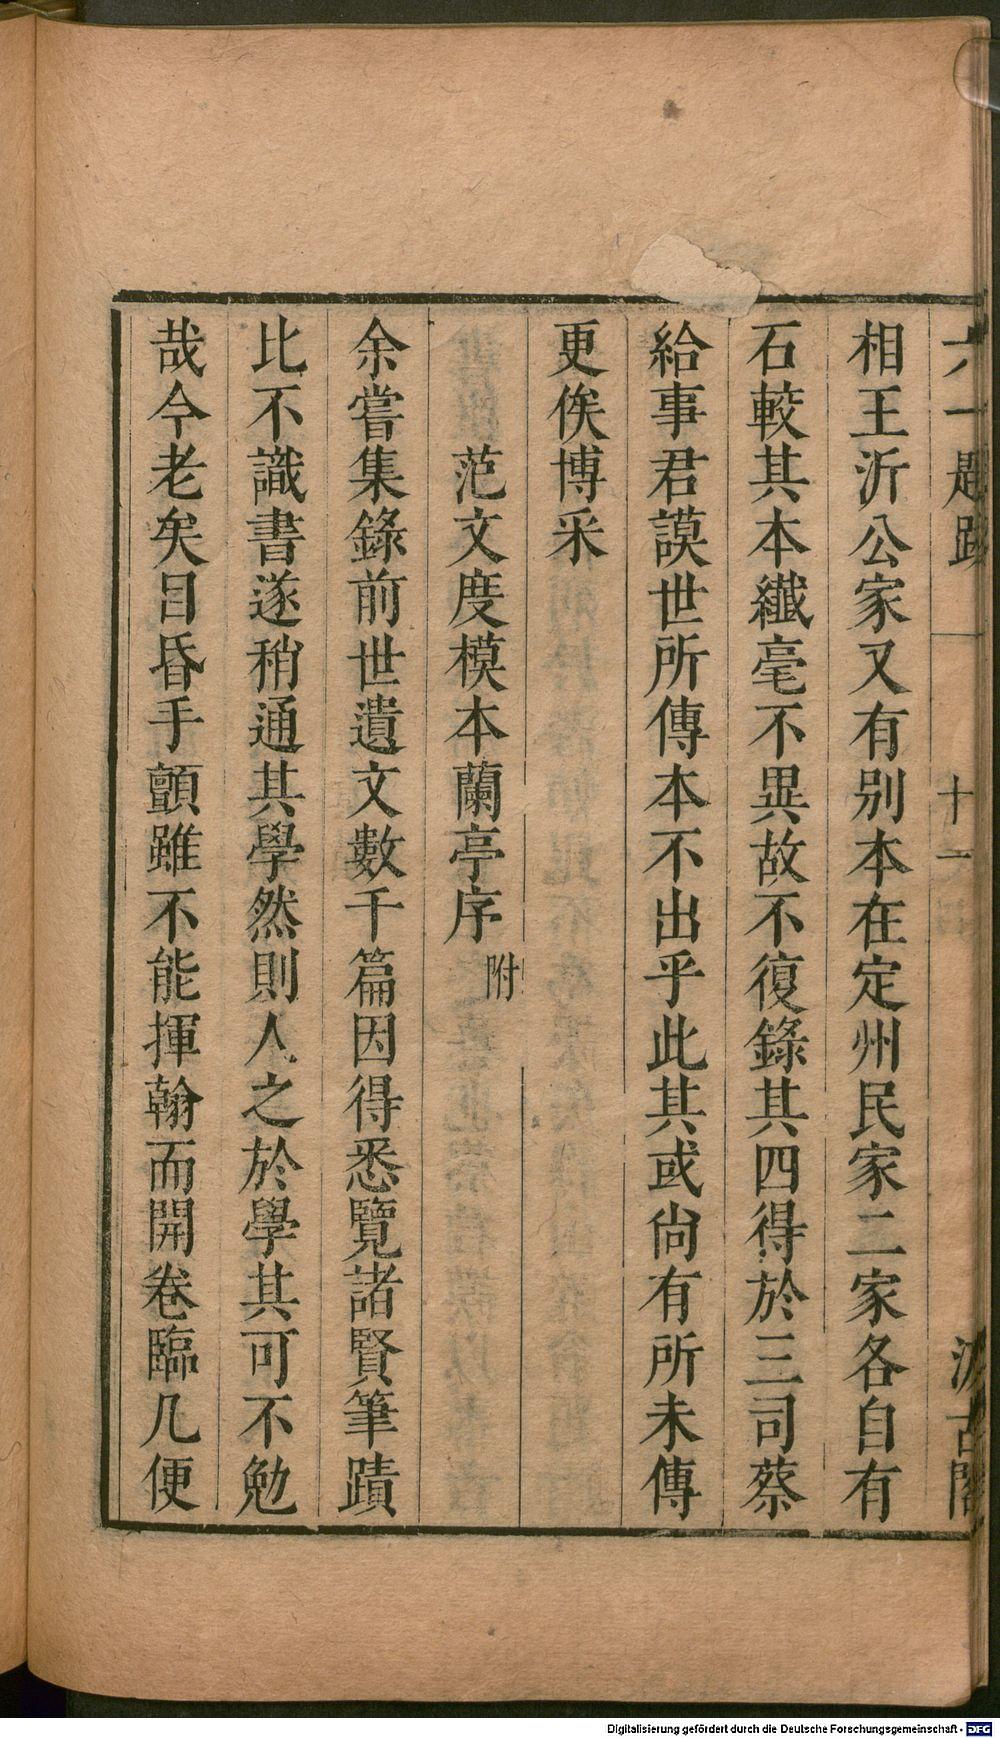 六一題跋 十一 汲古閣
相王沂公家又有別本在定州民家二家各自有
石較其本纖毫不異故不復錄其四得於三司蔡
給事君謨世所傳本不出乎此其或尙有所未傳
更俟博采
范文度模本蘭亭序 附
余嘗集錄前世遺文數千篇因得悉覽諸賢筆蹟
比不識書遂稍通其學然則人之於學其可不勉
哉今老矣目昏手顫雖不能揮翰而開卷臨几便
Digitalisierung gefördert durch die Deutsche Forschungsgemeinschaft - DFG